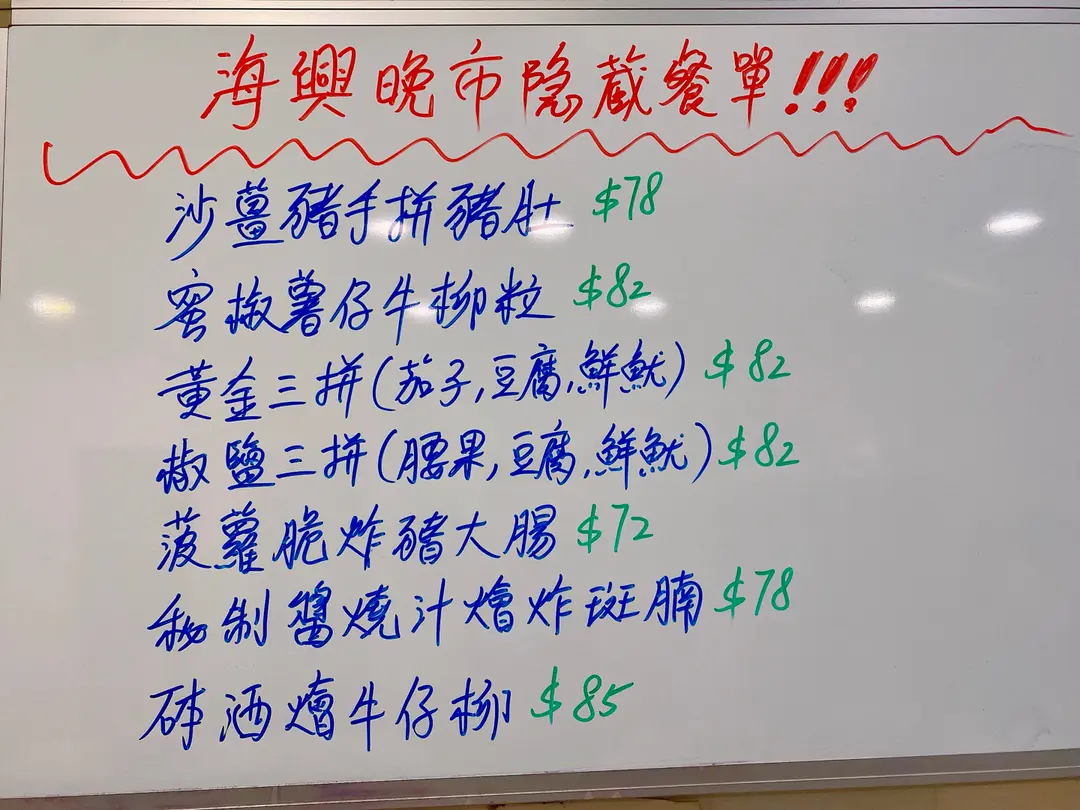 海興晚市隐蔵餐單!!!
沙薑豬手拼豬肚 $78
蜜椒薯仔牛柳粒 $82
黃金三拼(茄子,豆腐,鮮魷) $82
椒鹽三拼(腰果,豆腐,鮮魷) $82
菠蘿脆炸豬大腸 $72
秘制醬燒汁燴炸斑腩 $78
砵酒燴牛仔柳 $85